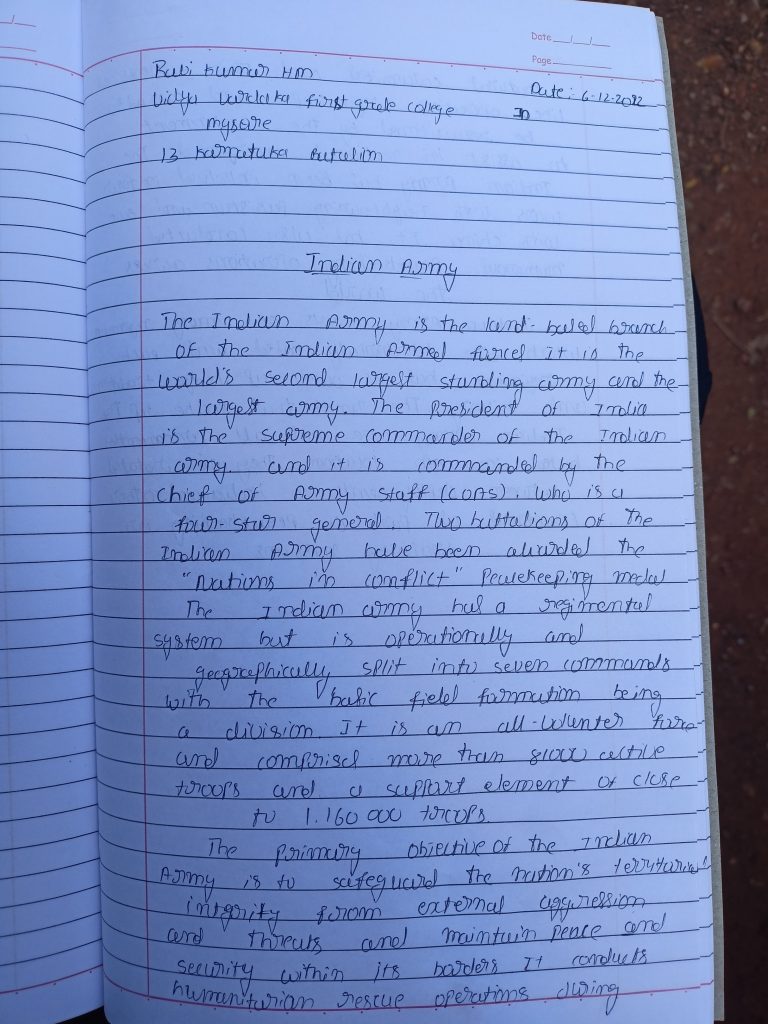 Date __/__/__
Page
Rabi Kumar HM
Date : 6-12-2022
Vidya Vardaka first grade college
mysore
13 Karnataka Batalim
Indian Army
The Indian Army is the land-based branch
of the Indian Armed forces It is the
world's second largest standing army and the
largest army. The President of India
is the supreme commander of the Indian
army. and it is commanded by the
Chief of Army staff (COAS). Who is a
four-star general. Two battalions of the
Indian Army have been awarded the
"Nations in conflict" Peacekeeping medal
The Indian army has a regimental
system but is operationally and
geographically split into seven commands
with the basic field formation being
a division. It is an all-volunter force
and comprises more than active
troops and a support element of close
to 1.160 000 troops.
The primary objective of the Indian
Army is to safeguard the nation's
intgrity from external aggression
and threats and maintain peace and
security within its borders It conducts
humanitarian rescue operations during